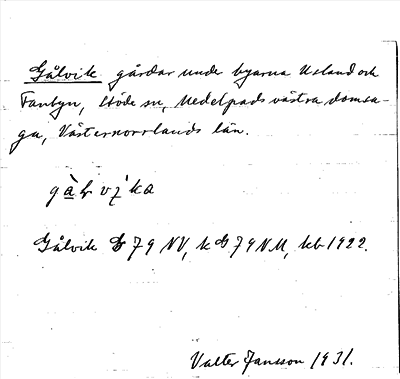 Gålvik gårdar unde byarna Usland och
Fanbyn, Stöde sn, Medelpads västra domsa-
ga, Västernorrlands län.
Gålvik G 79 NV, k G 79 NM, kb 1922.
Valter Jansson 1931.